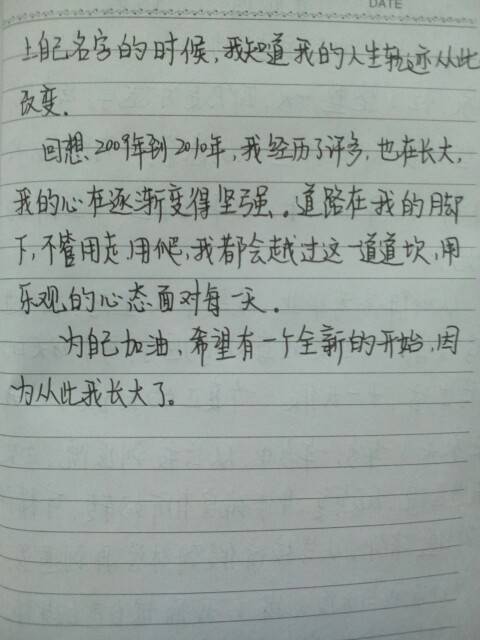 DATE
上自己名字的时候,我知道我的人生轨迹从此
改变.
回想2009年到2010年,我经历了许多,也在长大,
我的心在逐渐变得坚强。道路在我的脚
下,不管用走,用爬,我都会越过这一道道坎,用
乐观的心态面对每一天.
为自己加油,希望有一个全新的开始,因
为从此我长大了。